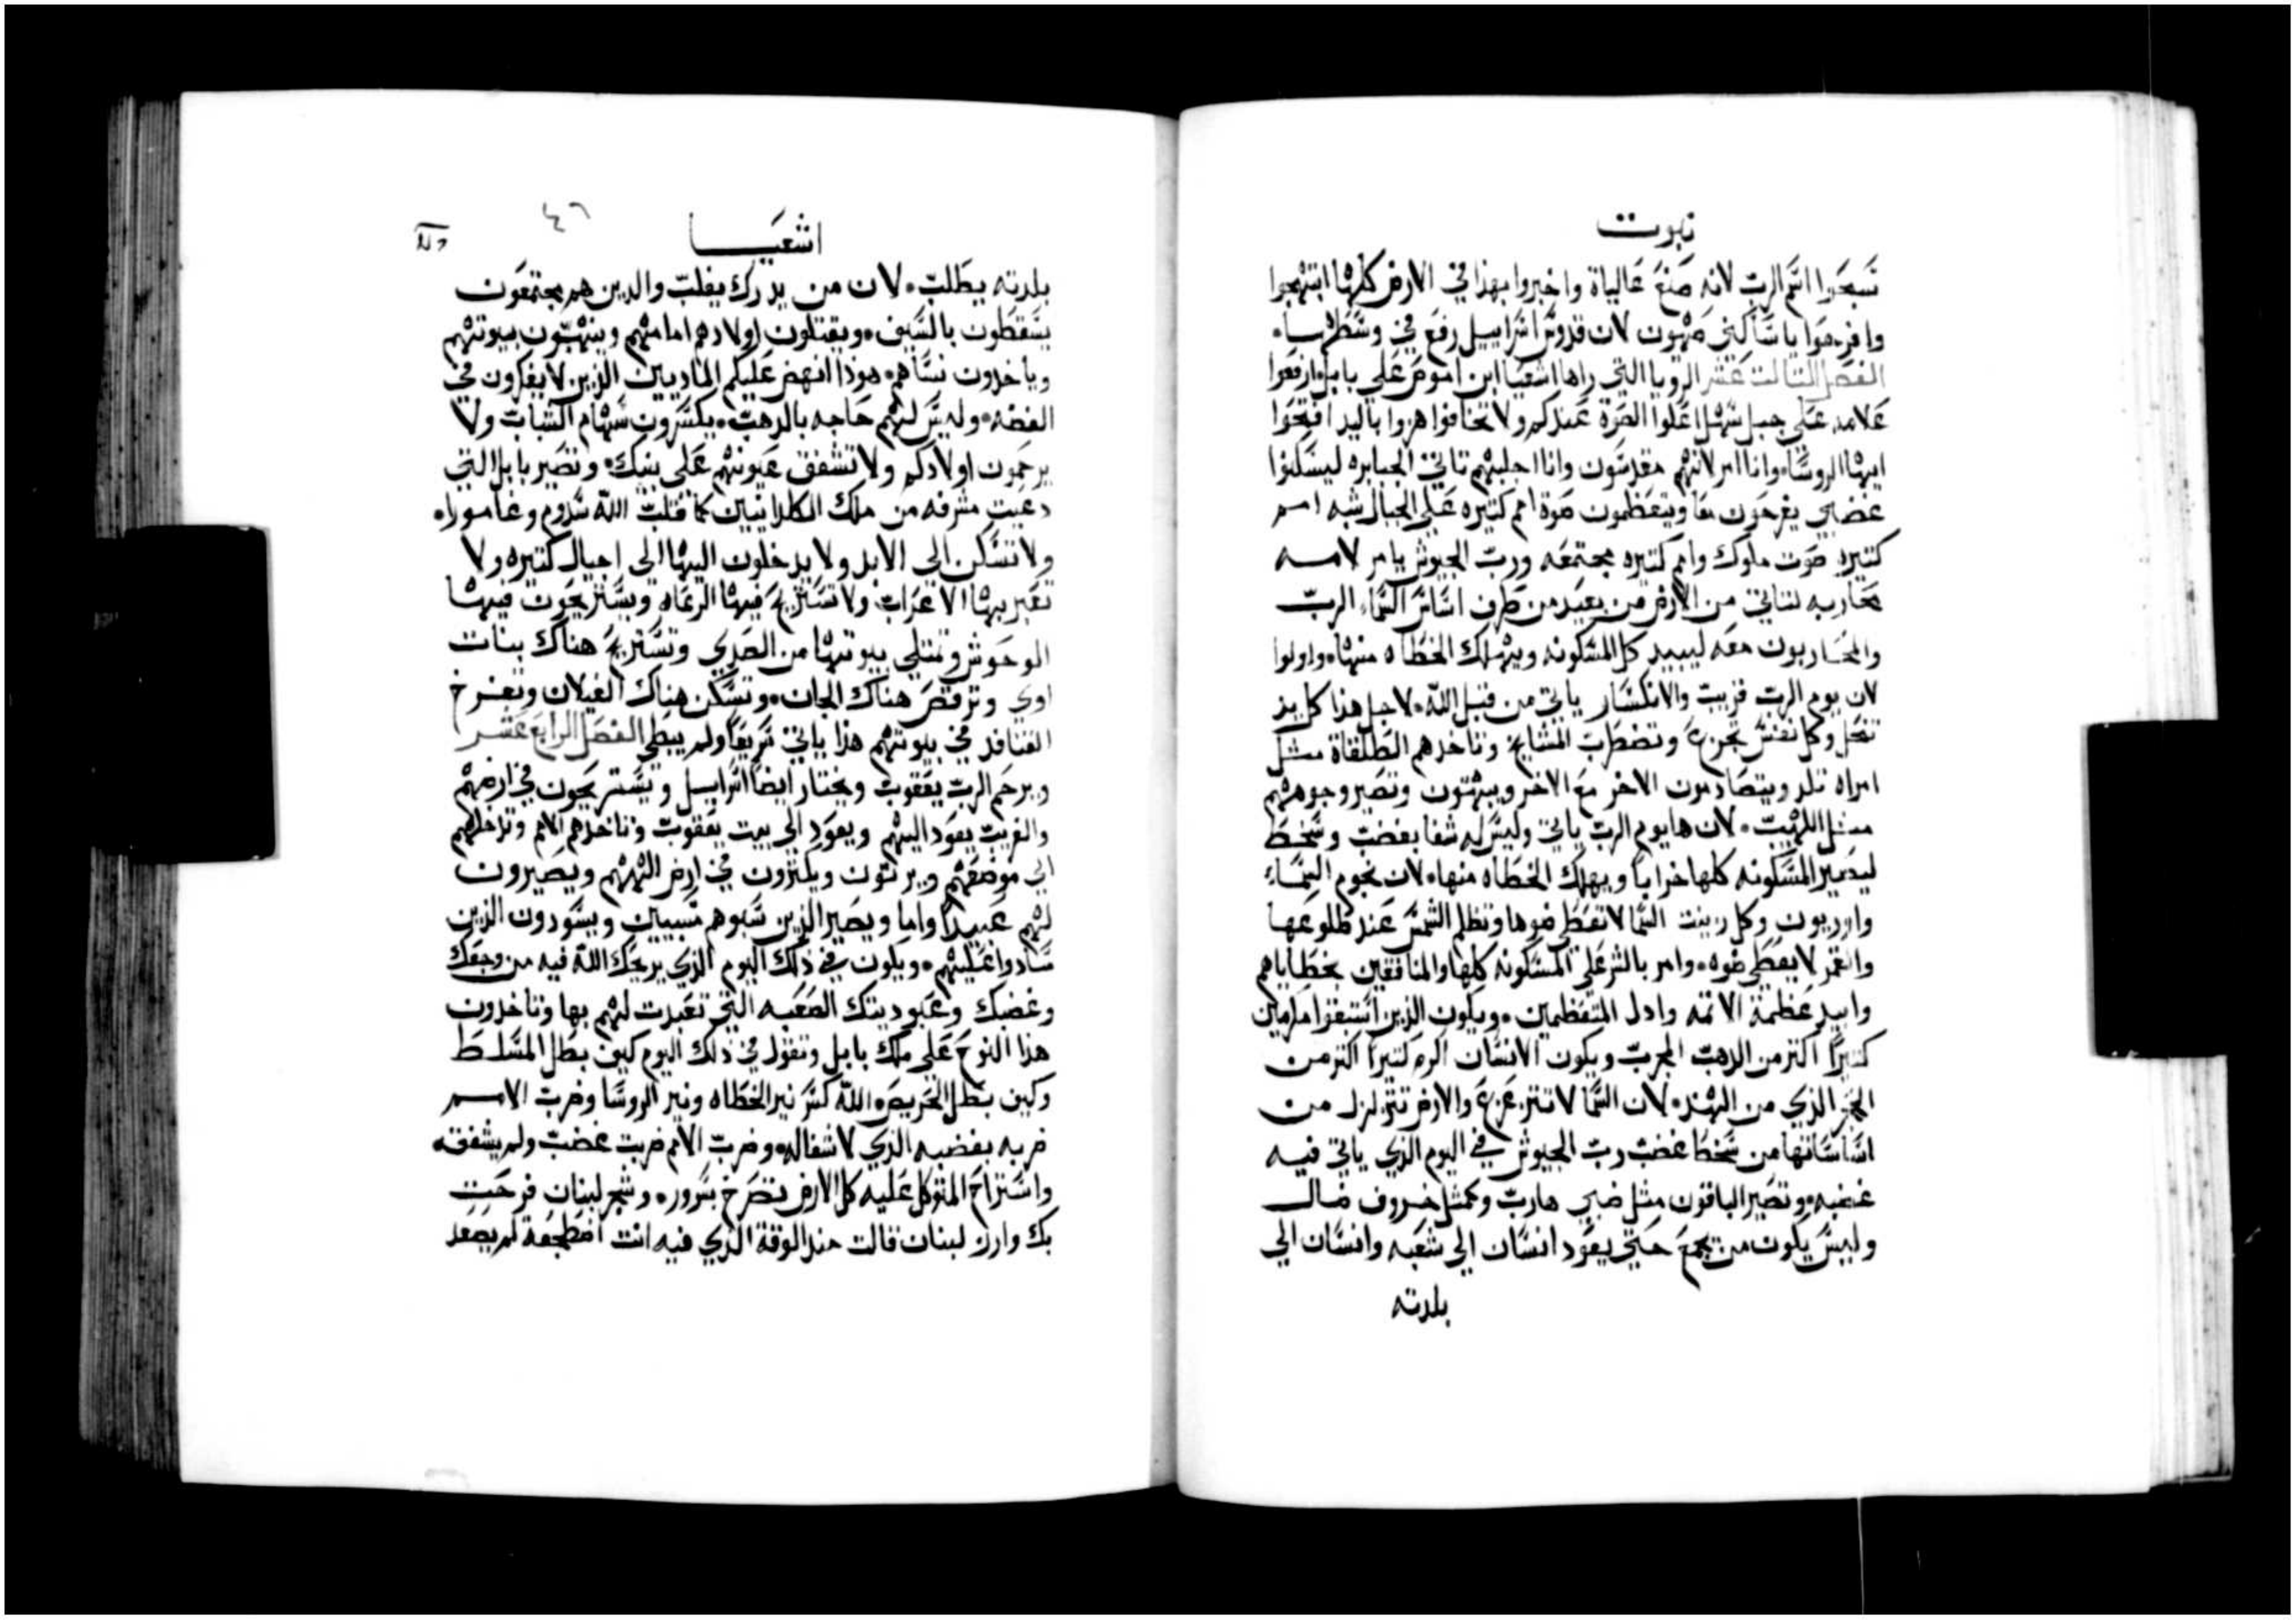 نبوت
سبحوا اسم الرب لانه صنع عالياة واخبروا بهذا في الارض كلها ابتهجوا
وافرحوا ياساكني صهيون لان قدوس اسراييل رفع في وسطها
الفصل التالت عشر الرويا التي راها اشعيا ابن اموص على بابل ارفعوا
علامه على جبل سهل اعلوا الصوة عندكم ولا تخافوا هزوا باليد افتحوا
ايها الروسا وانا امر لانهم مقدسون وانا اجلبهم تاتي الجبابره ليسكنوا
غضبي يفرحون معا ويتعظمون صوة امم كتيره على الجبال شبه امم
كتيره صوت ملوك وامم كتيره مجتمعه ورب الجيوش يامر لامه
محاربه لتاتي من الارض من بعيد من طرف اساس السما الرب
والمحاربون معه ليبيد كل المسكونه ويهلك الخطاه منها واولوا
لان يوم الرب قريب والانكسار ياتي من قبل الله لاجل هذا كل يد
تنحل وكل نفس تجزع وتضطرب المشايخ وتاخدهم الطلقاة متل
امراه تلد ويتصادمون الاخر مع الاخر ويبهتون وتصير وجوههم
متل اللهيب لان هايوم الرب ياتي وليس له شفا بغضب وسخط
ليصير المسكونه كلها خرابا ويهلك الخطاه منها لان نجوم السماء
واوريون وكل زينت السما لا تعطي ضوها وتظلم الشمس عند طلوعها
والقمر لا يعطي ضوه وامر بالشر على المسكونه كلها والمنافقين بخطاياهم
وابيد عظمة الاتمه وادل المتعظمين ويكون الذين استبقوا مكرمين
كتيرا اكتر من الدهب المجرب ويكون الانسان اكرم كتيرا اكتر من
الحجر الذي من الهند لان السما لا تتزعزع والارض تتزلزل من
اساساتها من سخط غضب رب الجيوش في اليوم الذي ياتي فيه
غضبه وتصير الباقون متل ضبي هارب وكمتل خروف ضال
وليس يكون من يجمع حتي يعود انسان الي شعبه وانسان الي
بلدته
اشعيا
٤٦
بلدته يطلب لان من يدرك يغلب والدين هم مجتمعون
يسقطون بالسيف ويقتلون اولادهم امامهم وينهبون بيوتهم
وياخدون نساهم هوذا انهض عليكم الماديين الذين لا يفكرون في
الفضه وليس لهم حاجه بالدهب يكسرون سهام الشباب ولا
يرحمون اولادكم ولا تشفق عيونهم على بنيك وتصير بابل التي
دعيت مشرفه من ملك الكلدانيين كما قلب الله سدوم وعامورا
ولا تسكن الى الابد ولا يدخلون اليها الى اجيال كتيره ولا
تعبر بها الاعراب ولا تستريح فيها الرعاه ويستريحون فيها
الوحوش وتمتلي بيوتها من الصدي وتستريح هناك بنات
اوي وترقص هناك الجان وتسكن هناك الغيلان وتفرخ
القنافد في بيوتهم هذا ياتي سريعا ولم يبطي الفصل الرابع عشر
ويرحم الرب يعقوب ويختار ايضا اسراييل ويستريحون في ارضهم
والغريب يعود اليهم ويعود الي بيت يعقوب وتاخدهم الامم وتدخلهم
الي موضعهم ويرتون ويكترون في ارض الههم ويصيرون
لهم عبيدا واما ويصير الذين سبوهم مسبيين ويسودون الذين
سادوا عليهم ويكون في ذلك اليوم الذي يريحك الله فيه من وجعك
وغضبك وعبوديتك الصعبه التي تعبدت لهم بها وتاخدون
هذا النوح على ملك بابل وتقول في ذلك اليوم كيف بطل المسلط
وكيف بطل الحريص الله كسر نير الخطاه ونير الروسا وضرب الامم
ضربه بغضبه الذي لا شفاله وضرب الامم ضربت غضب ولم يشفق
واستراح المتوكل عليه كل الارض تصرخ بسرور وشجر لبنان فرحت
بك وارز لبنان قالت منذ الوقة الذي فيه انت اضطجعة لم يصعد